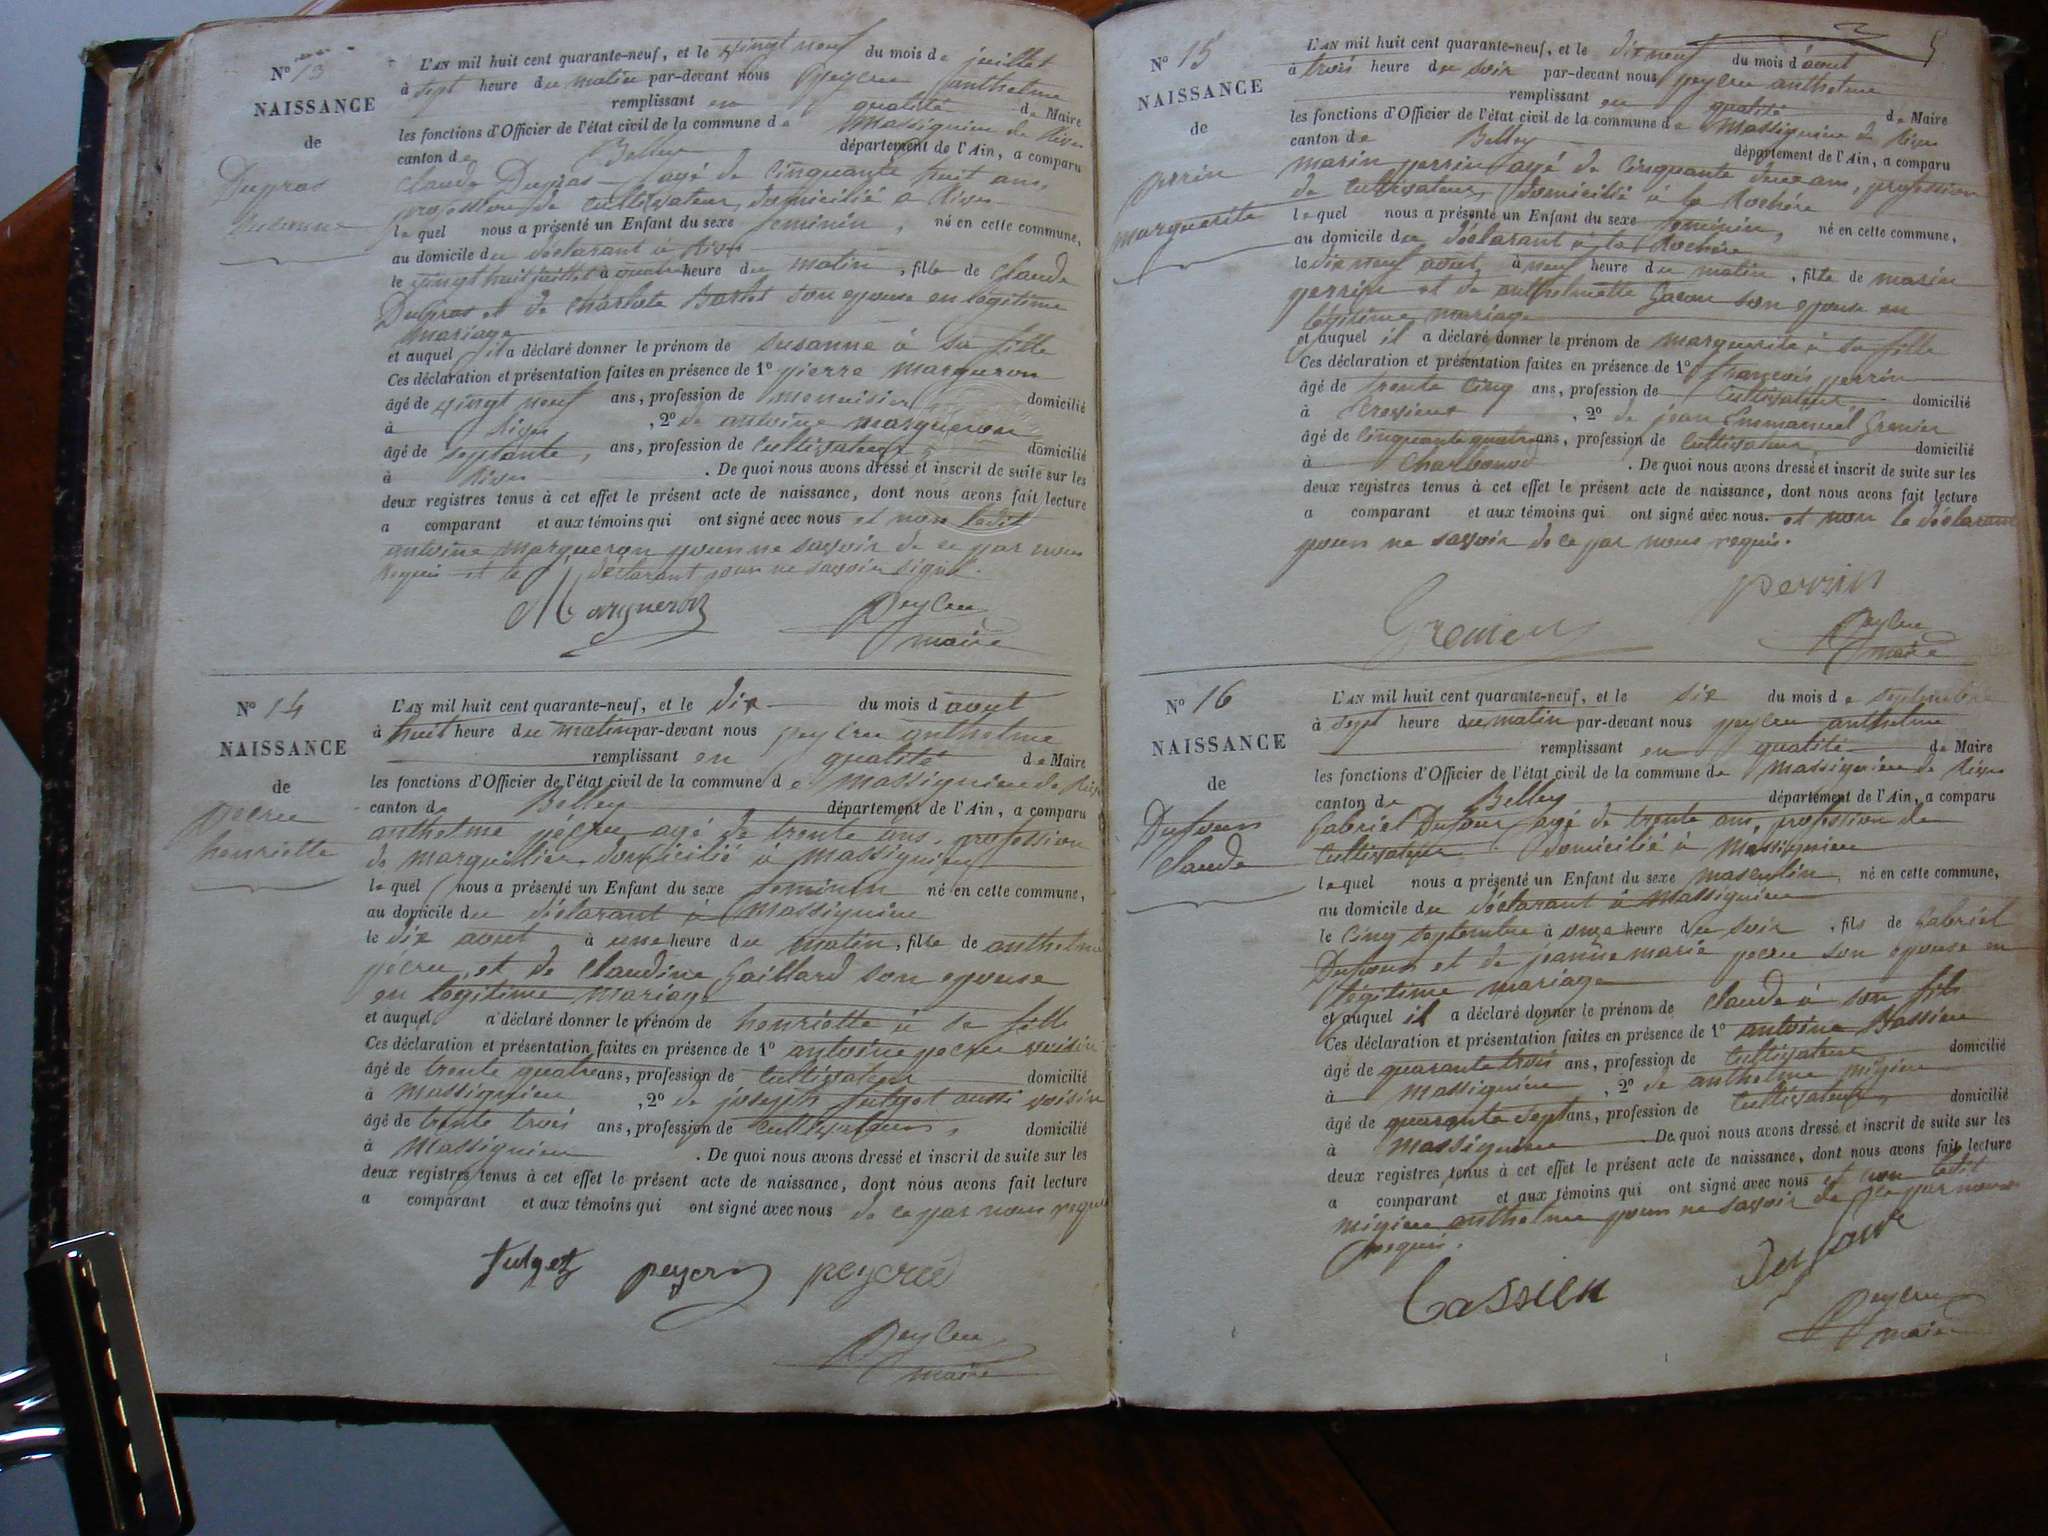 N° 13
NAISSANCE
de
Dupras
Susanne
L'AN mil huit cent quarante-neuf, et le vingt neuf du mois de juillet
à sept heure du matin par-devant nous Peycru anthelme
remplissant en qualité de Maire
les fonctions d'Officier de l'état civil de la commune de Massignieu de Rives
canton de Belley département de l'Ain, a comparu
Claude Dupras agé de Cinquante huit ans,
profession de Cultivateur, domicilié a Rives
lequel nous a présenté un Enfant du sexe feminin, né en cette commune,
au domicile du déclarant à Rives
le vingt huit juillet à quatre heure du matin, fille de Claude
Dupras et de Charlote Barlet son epouse en légitime
mariage
et auquel il a déclaré donner le prénom de susanne à sa fille
Ces déclaration et présentation faites en présence de 1° pierre Margueron
âgé de vingt neuf ans, profession de menuisier domicilié
à Rives, 2° de antoine margueron
âgé de septante, ans, profession de Cultivateur, domicilié
à Rives. De quoi nous avons dressé et inscrit de suite sur les
deux registres tenus à cet effet le présent acte de naissance, dont nous avons fait lecture
a comparant et aux témoins qui ont signé avec nous et non ledit
antoine Margueron pour ne savoir de ce par nous
Requis et le déclarant pour ne savoir signé.
Margueron Peycru
maire
N° 14
NAISSANCE
de
pecru
henriette
L'AN mil huit cent quarante-neuf, et le dix du mois d'aout
à huit heure du matin par-devant nous peycru anthelme
remplissant en qualité de Maire
les fonctions d'Officier de l'état civil de la commune de massignieu de Rives
canton de Belley département de l'Ain, a comparu
anthelme pécru agé de trente ans, profession
de marguillier domicilié à massignieu
lequel nous a présenté un Enfant du sexe feminin né en cette commune,
au domicile du déclarant à Massignieu
le dix aout à une heure du matin, fille de anthelme
pécru, et de Claudine Gaillard son epouse
en légitime mariage
et auquel a déclaré donner le prénom de henriette à sa fille
Ces déclaration et présentation faites en présence de 1° antoine pecru voisin
âgé de trente quatre ans, profession de Cultivateur domicilié
à Massignieu, 2° de joseph Julget aussi voisin
âgé de trente trois ans, profession de Cultivateur, domicilié
à Massignieu. De quoi nous avons dressé et inscrit de suite sur les
deux registres tenus à cet effet le présent acte de naissance, dont nous avons fait lecture
a comparant et aux témoins qui ont signé avec nous de ce par nous requis
Julget peycru peycrud
Peycru
maire
N° 15
NAISSANCE
de
perrin
marguerite
5
L'AN mil huit cent quarante-neuf, et le dix neuf du mois d'aout
à trois heure du soir par-devant nous peycru anthelme
remplissant en qualité de Maire
les fonctions d'Officier de l'état civil de la commune de Massignieu de Rives
canton de Belley département de l'Ain, a comparu
marin perrin agé de Cinquante deux ans, profession
de Cultivateur, domicilié à la Rochère
lequel nous a présenté un Enfant du sexe feminin, né en cette commune,
au domicile du déclarant à la Rochère
le dix neuf aout, à neuf heure du matin, fille de marin
perrin et de anthelmette Gacon son epouse en
légitime mariage
et auquel il a déclaré donner le prénom de marguerite à sa fille
Ces déclaration et présentation faites en présence de 1° françois perrin
âgé de trente Cinq ans, profession de Cultivateur domicilié
à Cressieux, 2° de jean Emmanuel Grenier
âgé de Cinquante quatre ans, profession de Cultivateur domicilié
à Charbonod. De quoi nous avons dressé et inscrit de suite sur les
deux registres tenus à cet effet le présent acte de naissance, dont nous avons fait lecture
a comparant et aux témoins qui ont signé avec nous. et non le déclarant
pour ne savoir de ce par nous requis.
perrin
Grenier Peycru
maire
N° 16
NAISSANCE
de
Dufour
Claude
L'AN mil huit cent quarante-neuf, et le six du mois de septembre
à sept heure du matin par-devant nous peycru anthelme
remplissant en qualité de Maire
les fonctions d'Officier de l'état civil de la commune de Massignieu de Rives
canton de Belley département de l'Ain, a comparu
Gabriel Dufour agé de trente ans, profession de
Cultivateur domicilié à Massignieu
lequel nous a présenté un Enfant du sexe masculin, né en cette commune,
au domicile du déclarant à Massignieu
le Cinq septembre à onze heure du soir, fils de Gabriel
Dufour et de jeanne marie pecru son epouse en
légitime mariage
et auquel il a déclaré donner le prénom de Claude à son fils
Ces déclaration et présentation faites en présence de 1° antoine Bassieu
âgé de quarante trois ans, profession de Cultivateur domicilié
à Massignieu, 2° de anthelme migieu
âgé de quarante sept ans, profession de Cultivateur, domicilié
à Massignieu. De quoi nous avons dressé et inscrit de suite sur les
deux registres tenus à cet effet le présent acte de naissance, dont nous avons fait lecture
a comparant et aux témoins qui ont signé avec nous et non ledit
migieu anthelme pour ne savoir de ce par nous
requis.
Bassieu Dufour
Peycru
maire